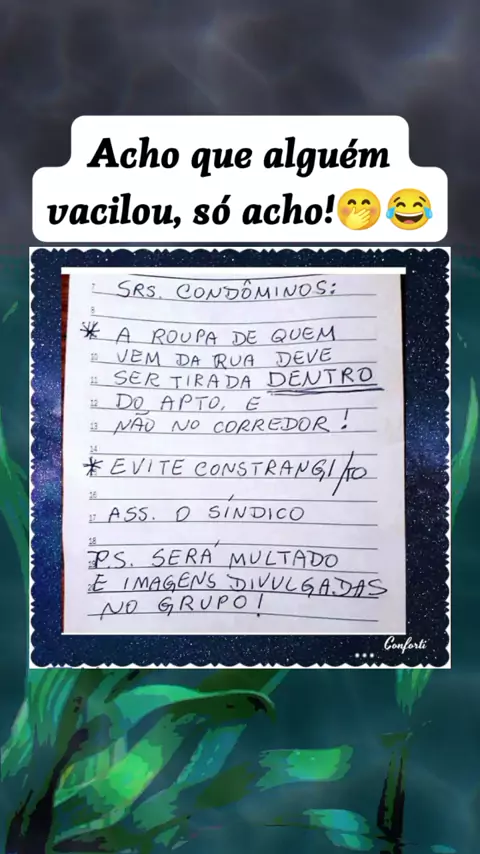 Acho que alguém
vacilou, só acho!🤭😂
7
SRS. CONDÔMINOS:
8
* A ROUPA DE QUEM
10 VEM DA RUA DEVE
11 SER TIRADA DENTRO
12 DO APTO, E
13 NÃO NO CORREDOR!
14
* EVITE CONSTRANGI/TO
16
17 ASS. O SÍNDICO
18
P.S. SERÁ MULTADO
E IMAGENS DIVULGADAS
NO GRUPO!
Conforti